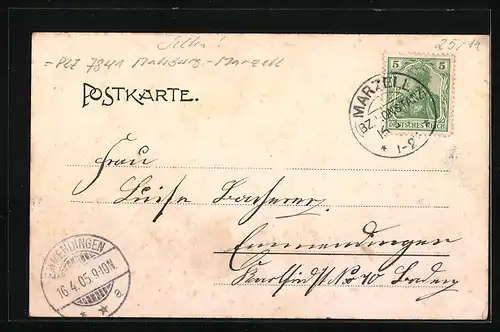 Selten!
25,-
= PLZ 7841 Malsburg-Marzell
POSTKARTE.
5 5
DEUTSCHES REICH
MARZELL
BZ. KONSTANZ
* 1-2 *
Frau
Luise Bacherer,
Emmendingen
Karlfriedrstr No 70 Baden
EMMENDINGEN
16.4.05.9-10N.
* * a